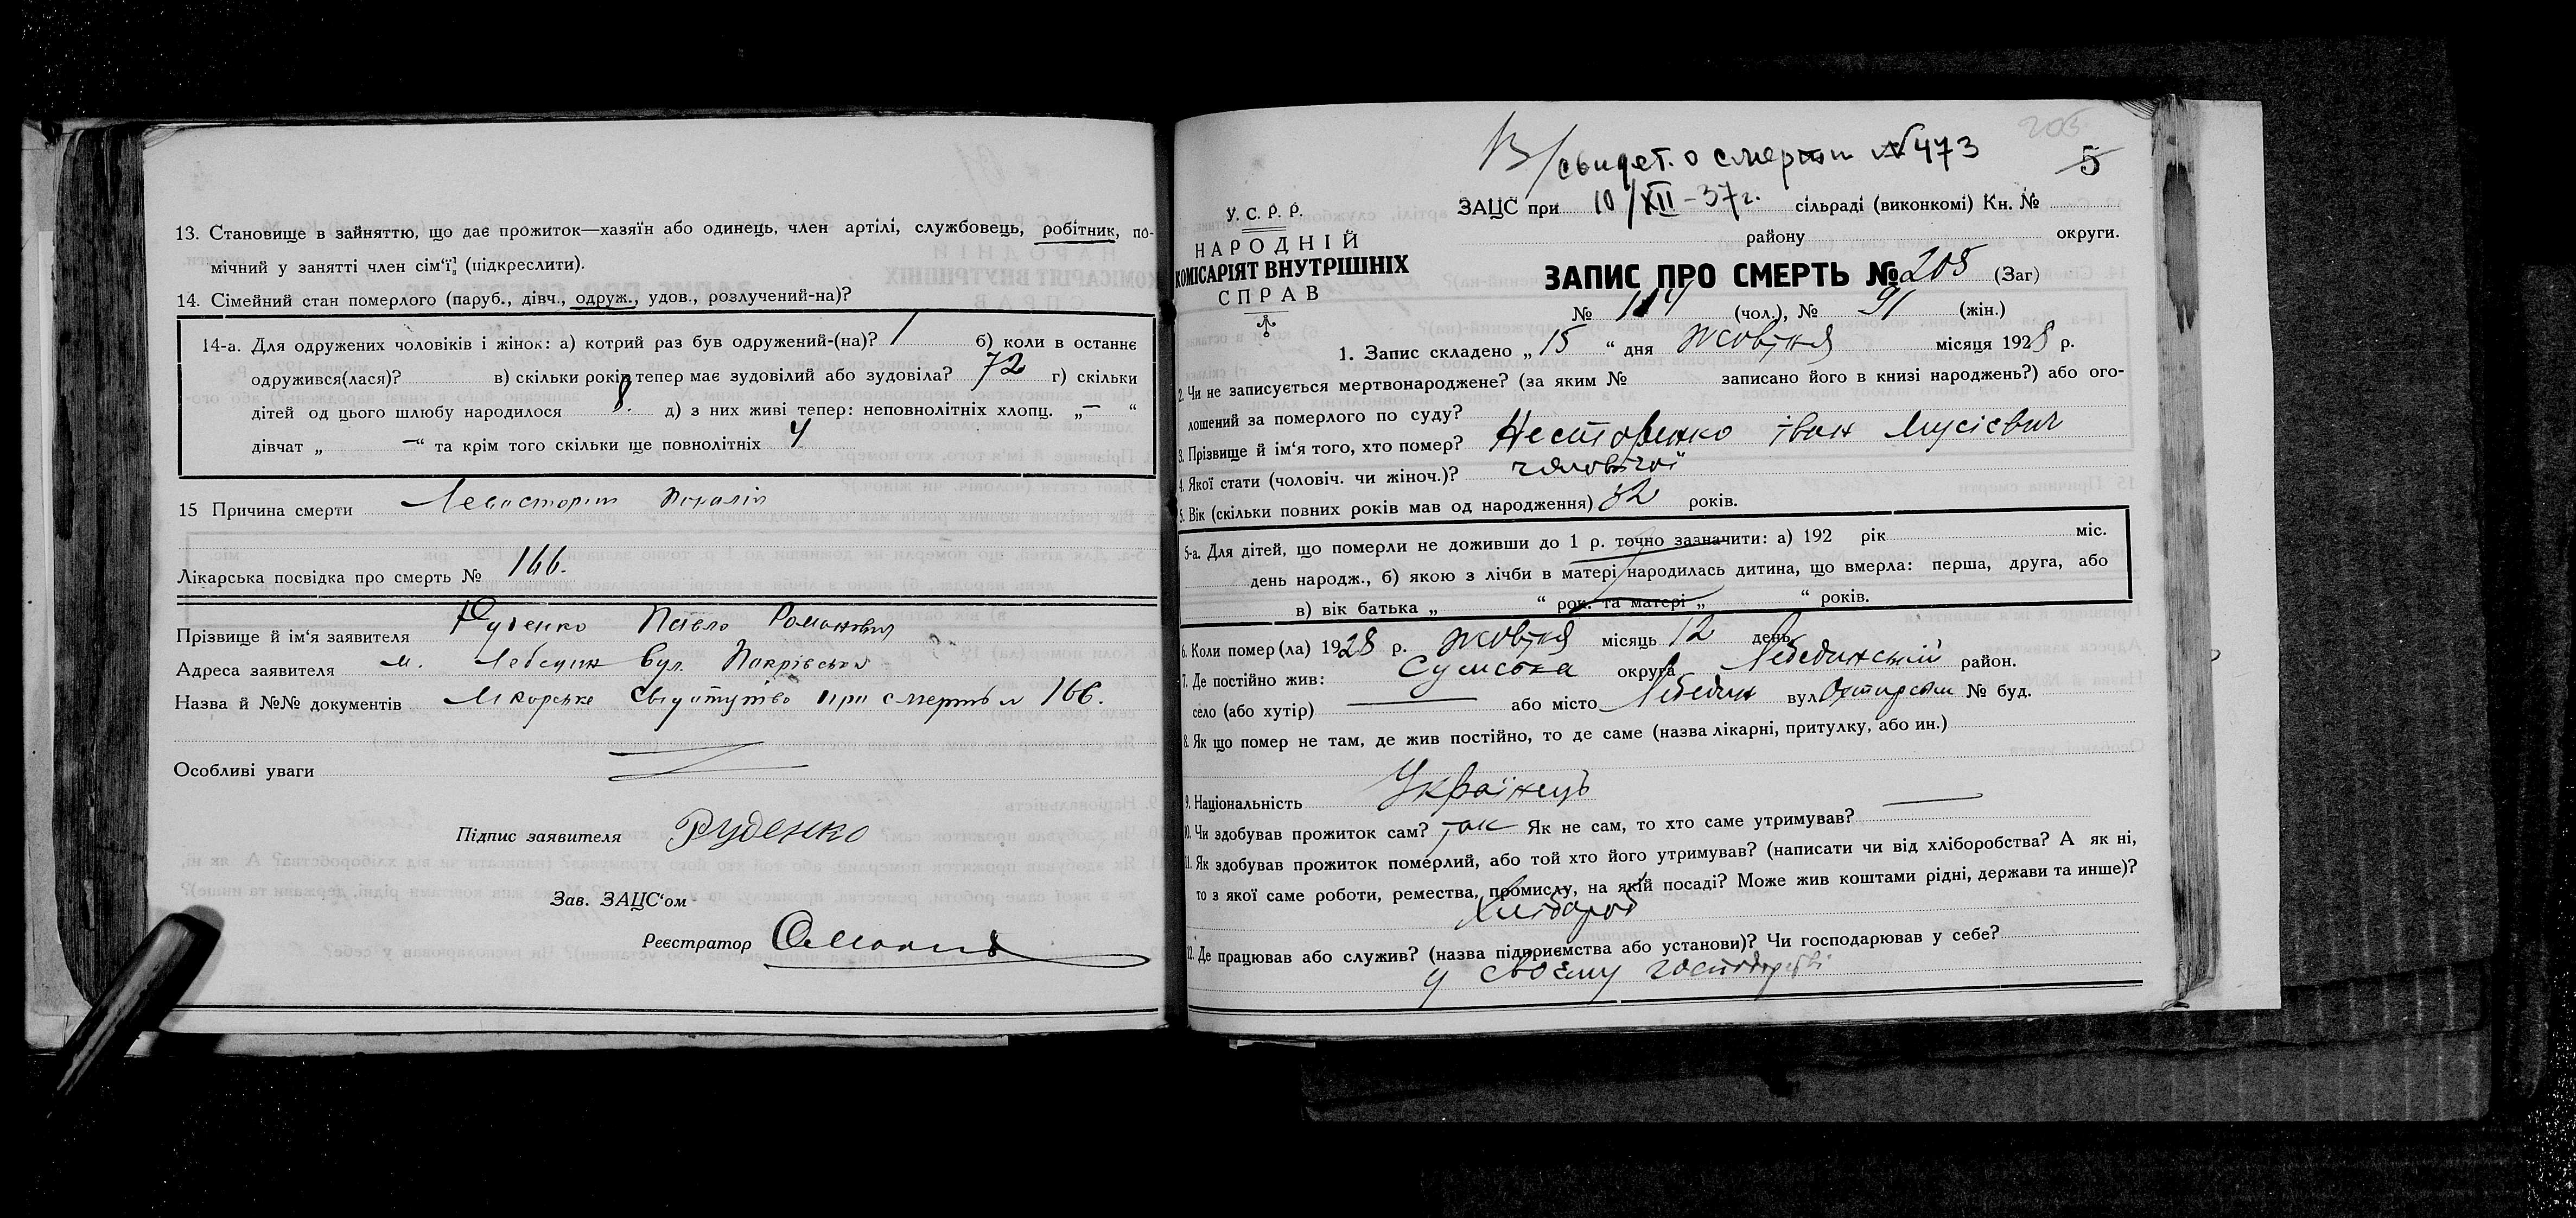 13. Становище в зайняттю, що дає прожиток—хазяїн або одинець, член артілі, службовець, робітник, по-
мічний у занятті член сім‘ї (підкреслити).
14. Сімейний стан померлого (паруб., дівч., одруж., удов., розлучений-на)?
14-а. Для одружених чоловіків і жінок: а) котрий раз був одружений-(на)? 1 б) коли в останнє
одружився(лася)? в) скільки років тепер має зудовілий або зудовіла? 72 г) скільки
дітей од цього шлюбу народилося 8. д) з них живі тепер: неповнолітніх хлопц. „—“
дівчат „—“ та крім того скільки ще повнолітніх 4
15 Причина смерти
Лікарська посвідка про смерть № 166.
Прізвище й ім‘я заявителя Руденко Павло Романович
Адреса заявителя м. Лебедин вул. Покрівська
Назва й №№ документів Лікарське свідитутво при смерть № 166.
Особливі уваги
Підпис заявителя Руденко
Зав. ЗАЦС‘ом
Реєстратор
205
В/свидет. о смерти № 473
5
У. С. Р. Р.
НАРОДНІЙ
КОМІСАРІЯТ ВНУТРІШНІХ
СПРАВ
ЗАЦС при 10/XII-37г. сільраді (виконкомі) Кн. №
району округи.
ЗАПИС ПРО СМЕРТЬ № 205 (Заг)
№ 114 (чол.), № 91 (жін.)
1. Запис складено „15“ дня Жовтня місяця 1928 р.
2. Чи не записується мертвонароджене? (за яким № записано його в книзі народжень?) або ого-
лошений за померлого по суду?
3. Прізвище й ім‘я того, хто помер? Несторенко Іван Мусієвич
4. Якої стати (чоловіч. чи жіноч.)? чоловічої
5. Вік (скільки повних років мав од народження) 82 років.
5-а. Для дітей, що померли не доживши до 1 р. точно зазначити: а) 192 рік міс.
день народж., б) якою з лічби в матері народилась дитина, що вмерла: перша, друга, або
в) вік батька „ “ рок. та матері „ “ років.
6. Коли помер (ла) 1928 р. Жовтня місяць 12 день
7. Де постійно жив: Сумська округа Лебединський район.
село (або хутір) — або місто Лебедин вул Охтирськ № буд.
8. Як що помер не там, де жив постійно, то де саме (назва лікарні, притулку, або ин.)
9. Національність Українець
10. Чи здобував прожиток сам? так Як не сам, то хто саме утримував? —
11. Як здобував прожиток померлий, або той хто його утримував? (написати чи від хліборобства? А як ні,
то з якої саме роботи, ремества, промислу, на якій посаді? Може жив коштами рідні, держави та инше)?
Хлібороб
12. Де працював або служив? (назва підприємства або установи)? Чи господарював у себе?
у своєму господарстві